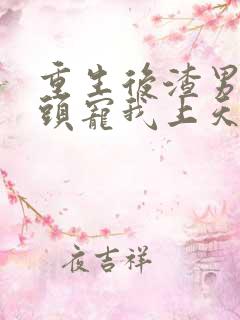 重生後渣男
頭寵我上天
夜吉祥